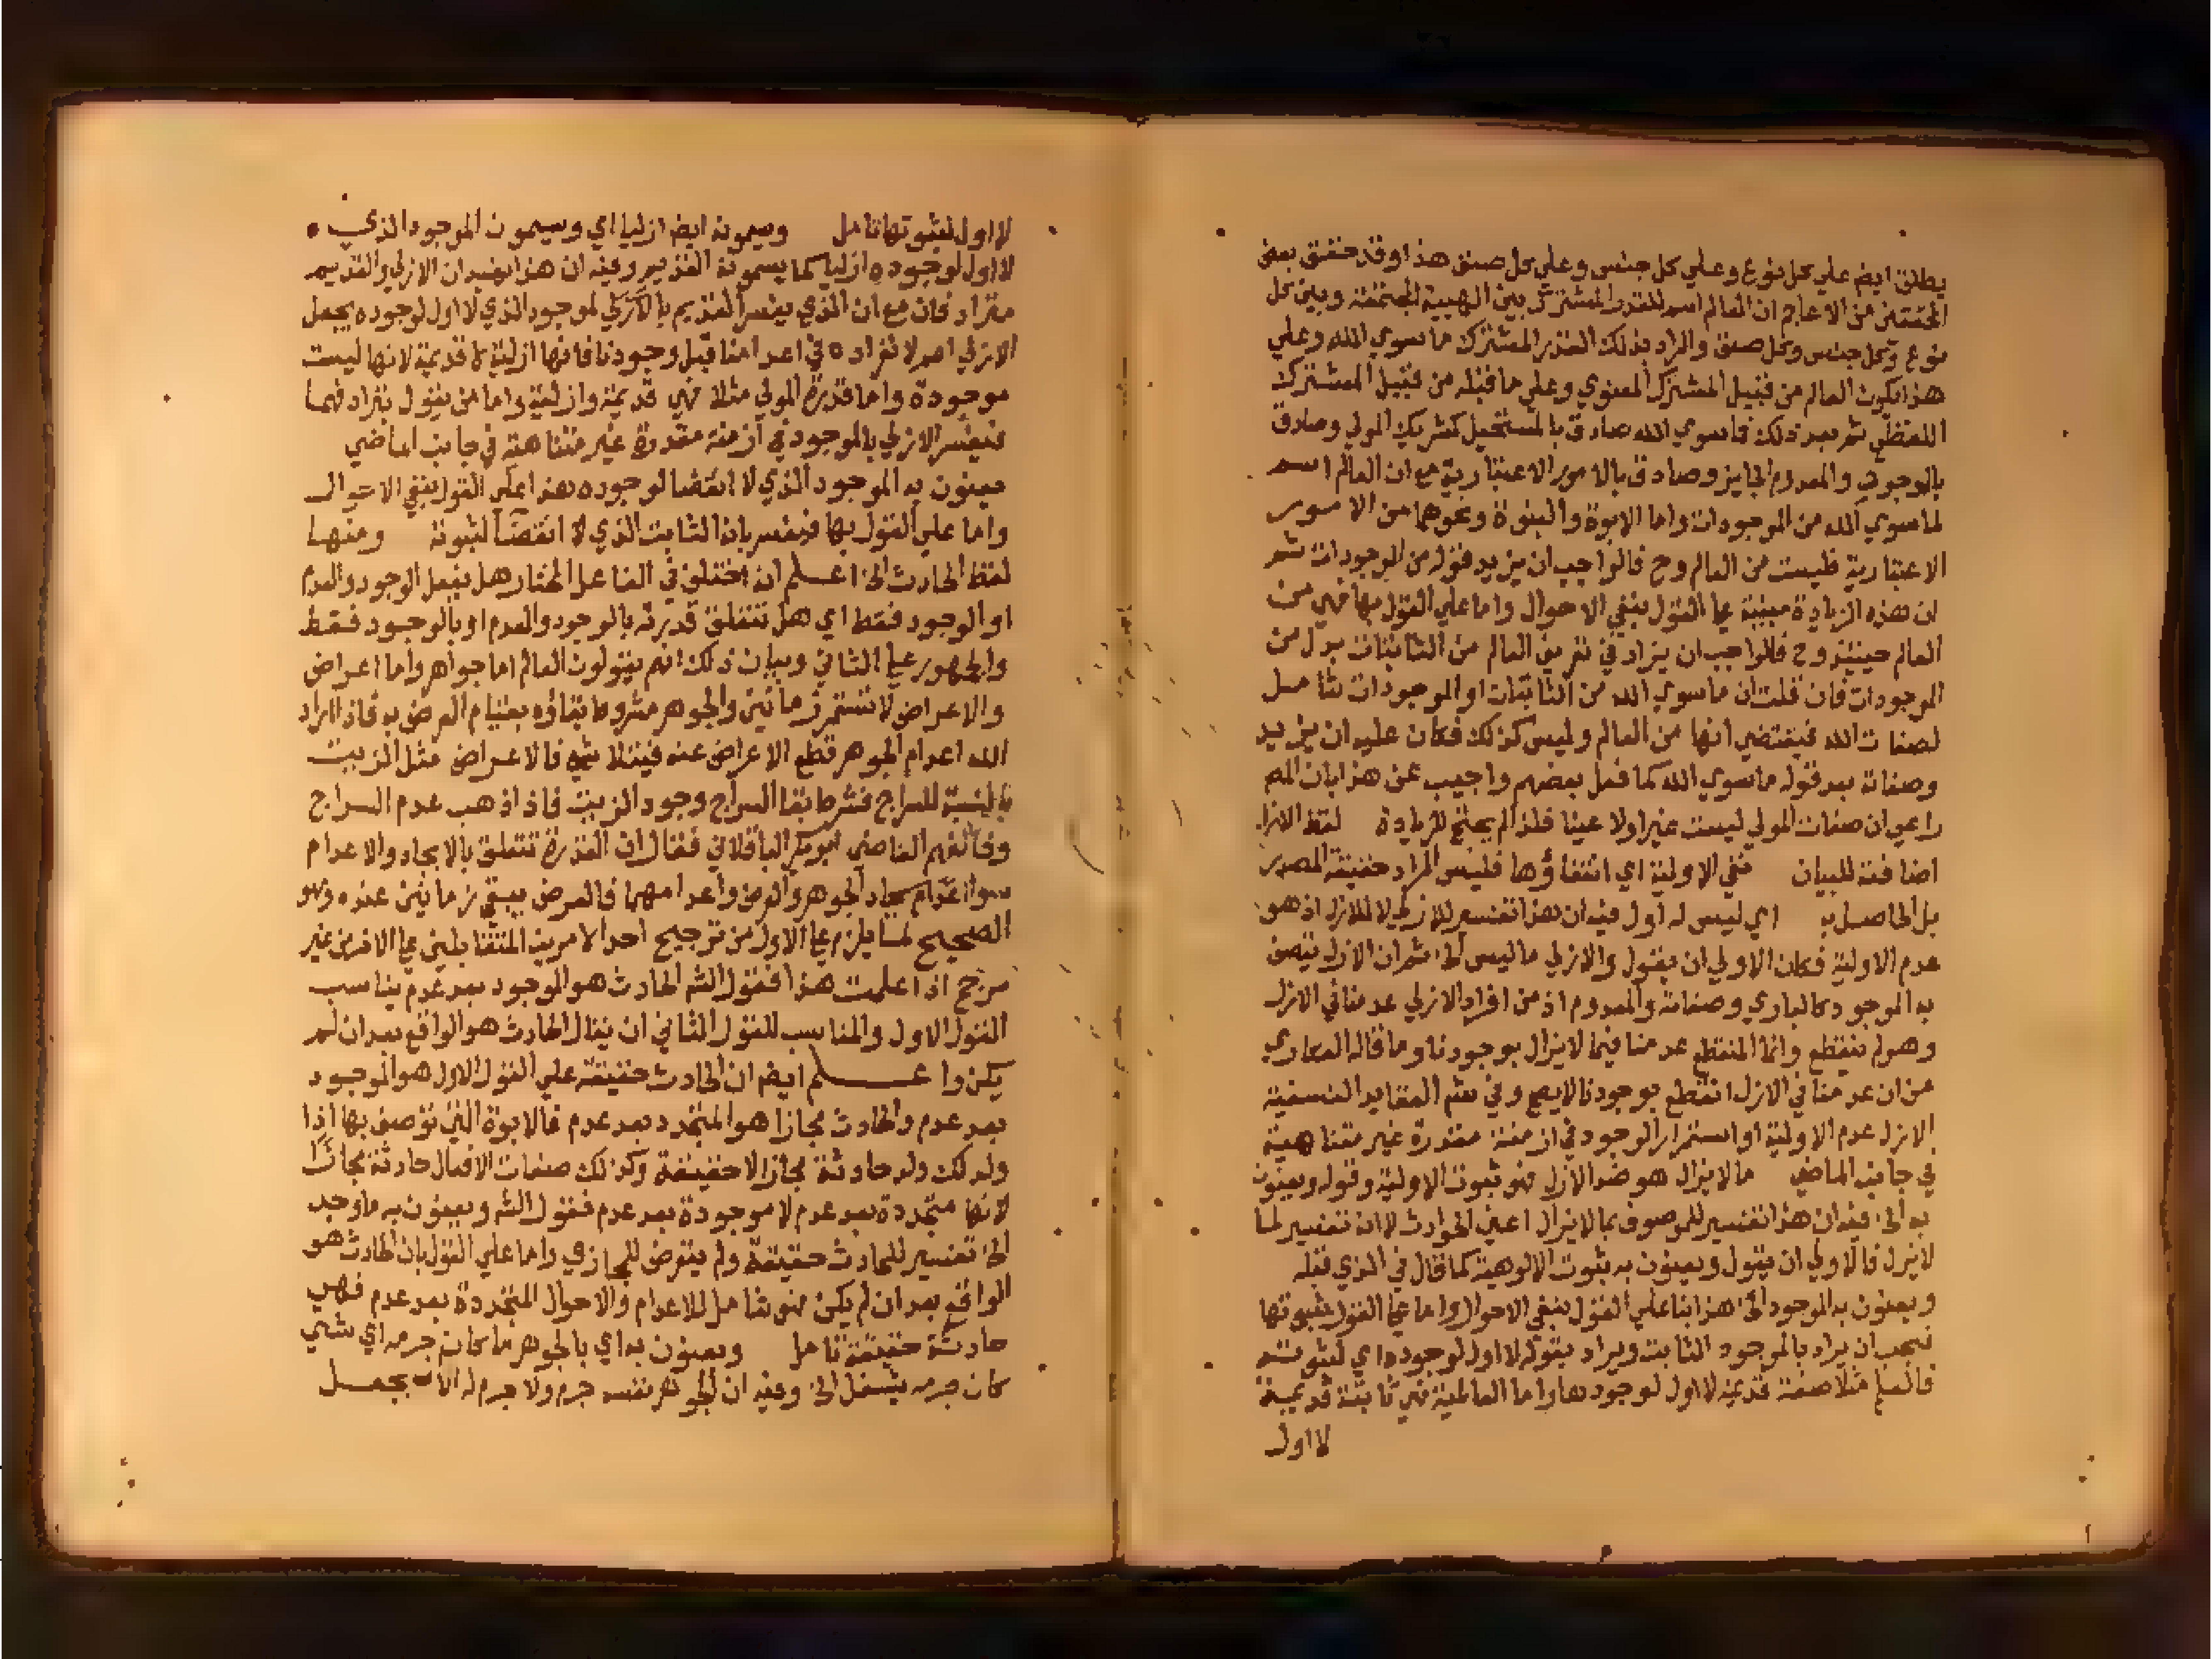 يطلق ايضا علي كل نوع وعلي كل جنس وعلي كل صنف هذا وقد حقق بعض
المحققين من الاعاجم ان العالم اسم للقدر المشترك بين الهيية المجتمعة وبين كل
نوع وكل جنس وكل صنف والمراد بذلك القدر المشترك ما سوي الله وعلي
هذا يكون العالم من قبيل المشترك المعنوي وعلي ما قبله من قبيل المشترك
اللفظي ثم بعد ذلك فما سوي الله صادق بالمستحيل كشريك المولي وصادق
بالموجود والمعدوم الجايز وصادق بالامور الاعتبارية مع ان العالم اسم
لما سوي الله من الموجودات واما الابوة والبنوة ونحوهما من الامور
الاعتبارية فليست من العالم وح فالواجب ان يزيد قوله من الموجودات ثم
ان هذه الزيادة مبنية علي القول بنفي الاحوال واما علي القول بها فهي من
العالم حينيذ وح فالواجب ان يزاد في تعريف العالم من الثابتات بدل من
الموجودات فان قلت ان ما سوي الله من الثابتات او الموجودات شامل
لصفات الله فيقتضي انها من العالم وليس كذلك فكان عليه ان يزيد
وصفاته بعد قوله ما سوي الله كما فعل بعضهم واجيب عن هذا بان المص
راعي ان صفات المولي ليست غيرا ولا عينا فلذا لم يحتج للزيادة لفظ الازل
اضافته للبيان نفي الاولية اي انتفاؤها فليس المراد حقيقة المصدر
بل الحاصل به اي ليس له اول فيه ان هذا تفسير للازلي لا للازل اذ هو
عدم الاولية فكان الاولي ان يقول والازلي ما ليس الخ ثم ان الازلي يتصف
به الموجود كالباري وصفاته والمعدوم اذ من افراد الازلي عدمنا في الازل
وهو لم ينقطع وانما المنقطع عدمنا فيما لا يزال بوجودنا وما قاله العكاري
من ان عدمنا في الازل انقطع بوجودنا لا يصح وفي شم العقايد النسفية
الازل عدم الاولية او استمرار الوجود في ازمنة مقدرة غير متناهية
في جانب الماضي ما لا يزال هو ضد الازل فهو ثبوت الاولية وقوله ويعنون
به الخ فيه ان هذا تفسير للموصوف بما لا يزال اعني الحوادث لا انه تفسير لما
لا يزل فالاولي ان يقول ويعنون به ثبوت الالوهية كما قال في الذي قبله
ويعنون به الموجود الخ هذا بنا علي القول بنفي الاحوال واما علي القول بثبوتها
فيجب ان يراد بالموجود الثابت ويراد بقوله لا اول لوجوده اي لثبوته
فالعلم مثلا صفة قديمة لا اول لوجودها واما العالمية فهي ثابتة قديمة
لا اول
لا اول لثبوتها تامل ويسمونه ايضا ازليا اي ويسمون الموجود الذي
لا اول لوجوده ازليا كما يسمونه القديم وفيه ان هذا يفيد ان الازلي والقديم
مترادفان مع ان الذي يفسر القديم بالازلي لموجود الذي لا اول لوجوده يجعل
الازلي اعم لانفراده في اعدامنا قبل وجودنا فانها ازلية لا قديمة لانها ليست
موجودة واما قدرة المولي مثلا فهي قديمة وازلية واما من يقول بترادفهما
فيفسر الازلي بالموجود في ازمنة مقدرة غير متناهية في جانب الماضي
يعنون به الموجود الذي لا انقضا لوجوده هذا علي القول بنفي الاحوال
واما علي القول بها فيفسر بانه الثابت الذي لا انقضا لثبوته ومنها
لفظ الحادث الخ اعلم انه اختلف في الفاعل المختار هل يفعل الوجود والعدم
او الوجود فقط اي هل تتعلق قدرته بالوجود والعدم او بالوجود فقط
والجمهور علي الثاني وبيان ذلك انهم يقولون العالم اما جواهر واما اعراض
والاعراض لا تستمر زمانين والجوهر مشروط بقاؤه بقيام العرض به فاذا اراد
الله اعدام الجوهر قطع الاعراض عنه فيتلاشي فالاعراض مثل الزيت
بالنسبة للسراج فشرط بقا السراج وجود الزيت فاذا ذهب عدم السراج
وخالفهم القاضي ابو بكر الباقلاني فقال ان القدرة تتعلق بالايجاد والاعدام
سوا ايجاد الجوهر والعرض واعدامهما فالعرض يبقي زمانين عنده وهو
الصحيح لما يلزم علي الاول من ترجيح احد الامرين المتقابلين علي الاخر من غير
مرجح اذا علمت هذا فقول الشم الحادث هو الموجود بعد عدم يناسب
القول الاول والمناسب للقول الثاني ان يقال الحادث هو الواقع بعد ان لم
يكن واعلم ايضا ان الحادث حقيقة علي القول الاول هو الموجود
بعد عدم والحادث مجازا هو المتجدد بعد عدم فالابوة التي توصف بها اذا
ولد لك ولد حادثة مجازا لا حقيقة وكذلك صفات الافعال حادثة مجازا
لانها متجددة بعد عدم لا موجودة بعد عدم فقول الشم ويعنون به ما وجد
الخ تفسير للحادث حقيقة ولم يتعرض للمجازي واما علي القول بان الحادث هو
الواقع بعد ان لم يكن فهو شامل للاعدام والاحوال المتجددة بعد عدم فهي
حادثة حقيقة تامل ويعنون به اي بالجوهر ما كان جرمه اي شيي
كان جرمه يشغل الخ وفيه ان الجوهر نفسه جرم ولا جرم له الا ان يجعل